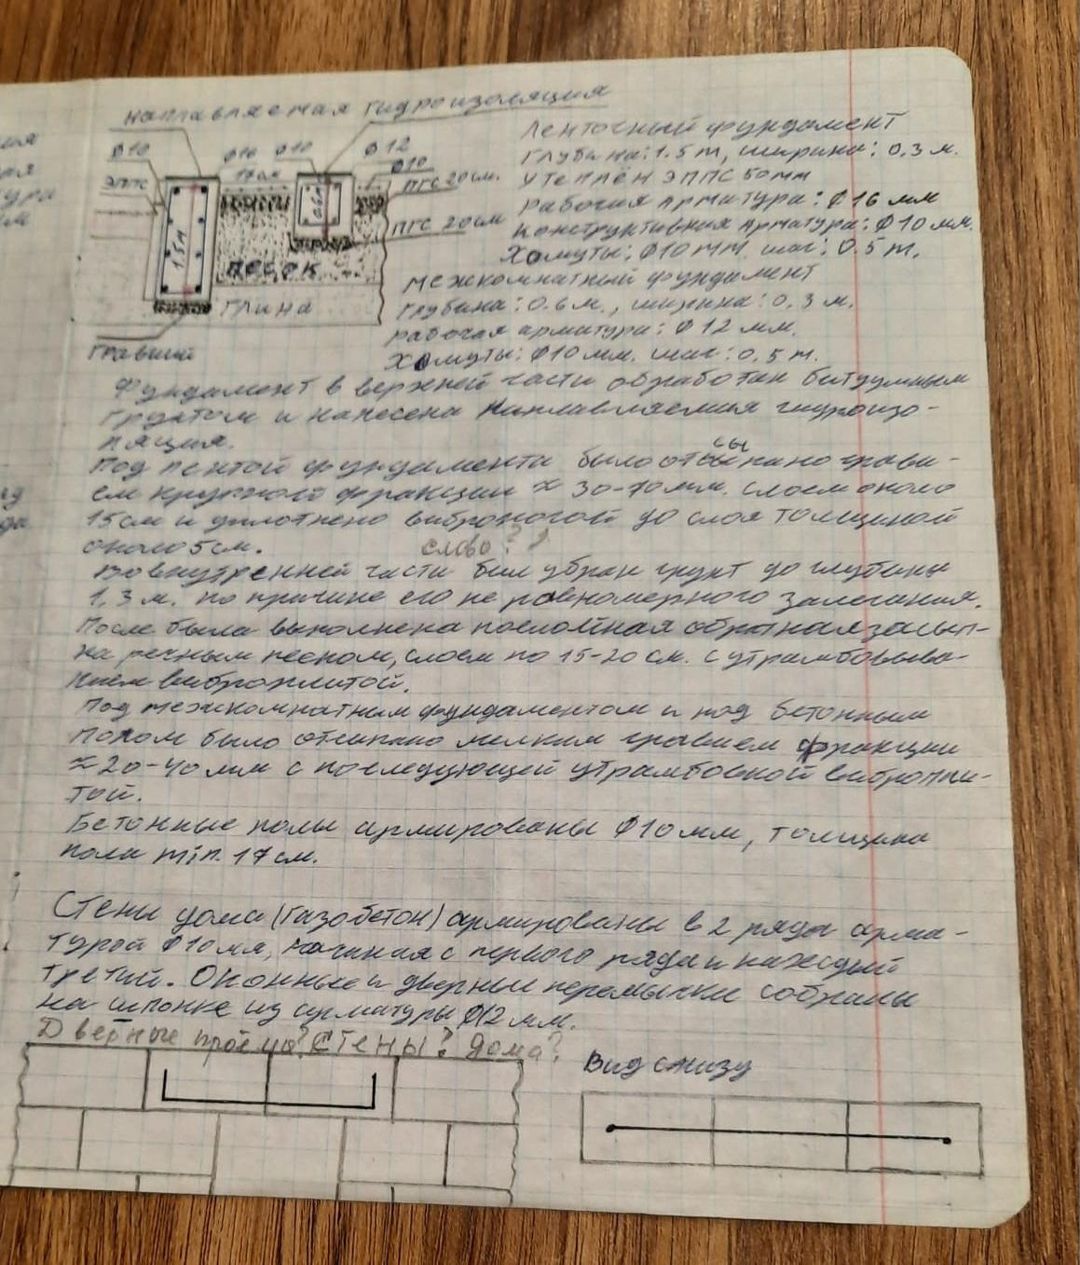 наплавляемая гидроизоляция
Ø10
Ø16
Ø10
Ø12
Ø10
ЭППС
17 см
ПГС 20 см.
ПГС 20 см
1.5 м
0.6 м
песок
глина
гравий
Ленточный фундамент
глубина: 1.5 м, ширина: 0.3 м.
утеплён ЭППС 50 мм
рабочая арматура: Ø16 мм
конструктивная арматура: Ø10 мм.
Хомуты: Ø10 мм. шаг: 0.5 м.
межкомнатный фундамент
глубина: 0.6 м., ширина: 0.3 м.
рабочая арматура: Ø12 мм.
Хомуты: Ø10 мм. шаг: 0,5 м.
Фундамент в верхней части обработан битумным
грунтом и нанесена наплавляемая гидроизо-
ляция.
Под лентой фундамента было отсыпано грави-
ем крупной фракции ≈ 30-70 мм. слоем около
15 см и уплотнено виброногой до слоя толщиной
около 5 см.
слово?
Во внутренней части был убран грунт до глубины
1,3 м. по причине его не равномерного залегания.
После была выполнена послойная обратная засып-
ка речным песком, слоем по 15-20 см. с утрамбовыва-
нием виброплитой.
Под межкомнатным фундаментом и под бетонным
полом было отсыпано мелким гравием фракции
≈ 20-40 мм с последующей утрамбовкой вибропли-
той.
Бетонные полы армированы Ø10 мм, толщина
пола min. 17 см.
Стены дома (газобетон) армированы в 2 ряда арма-
турой Ø10 мм, начиная с первого ряда и каждый
третий. Оконные и дверные перемычки собраны
на шпонке из арматуры Ø12 мм.
Дверные проёмы? Стены? Дома?
Вид снизу